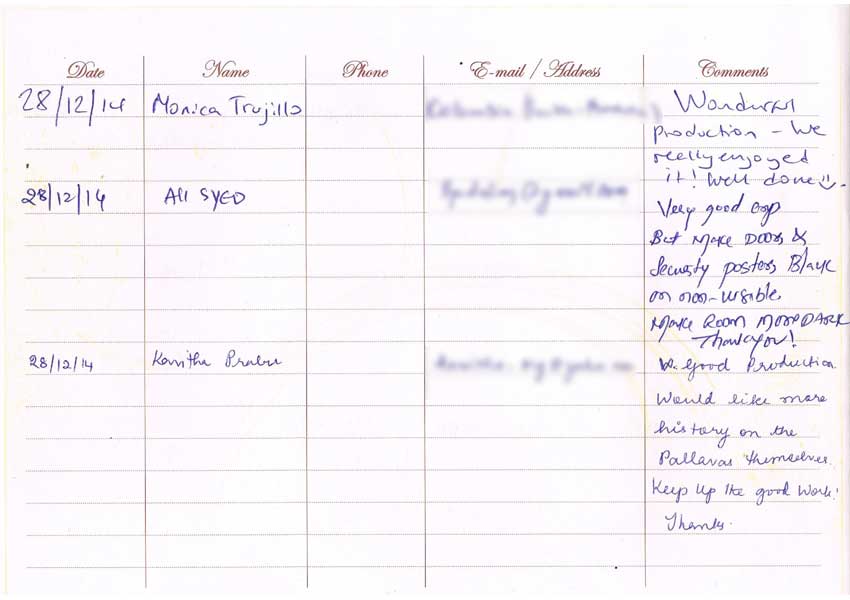 Date Name Phone E-mail / Address Comments
28/12/14 Monica Trujillo Wonderful
production - We
really enjoyed
it! Well done
28/12/14 Ali SYED Very good
But Make Doors &
Security posters Black
or non-visible
Make Room More DARK
Thankyou!
28/12/14 Kavitha Prabu V. good Production
Would like more
history on the
Pallavas themselves.
Keep up the good work!
Thanks.